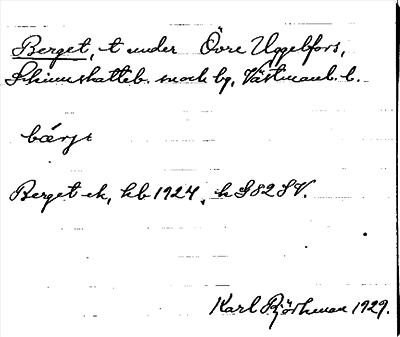 Berget, t under Övre Uggelfors,
Skinnskatteb. sock bg, Västmanl. l.
bærjt
Berget ek, kb 1924, h S82SV.
Karl Björkman 1929.